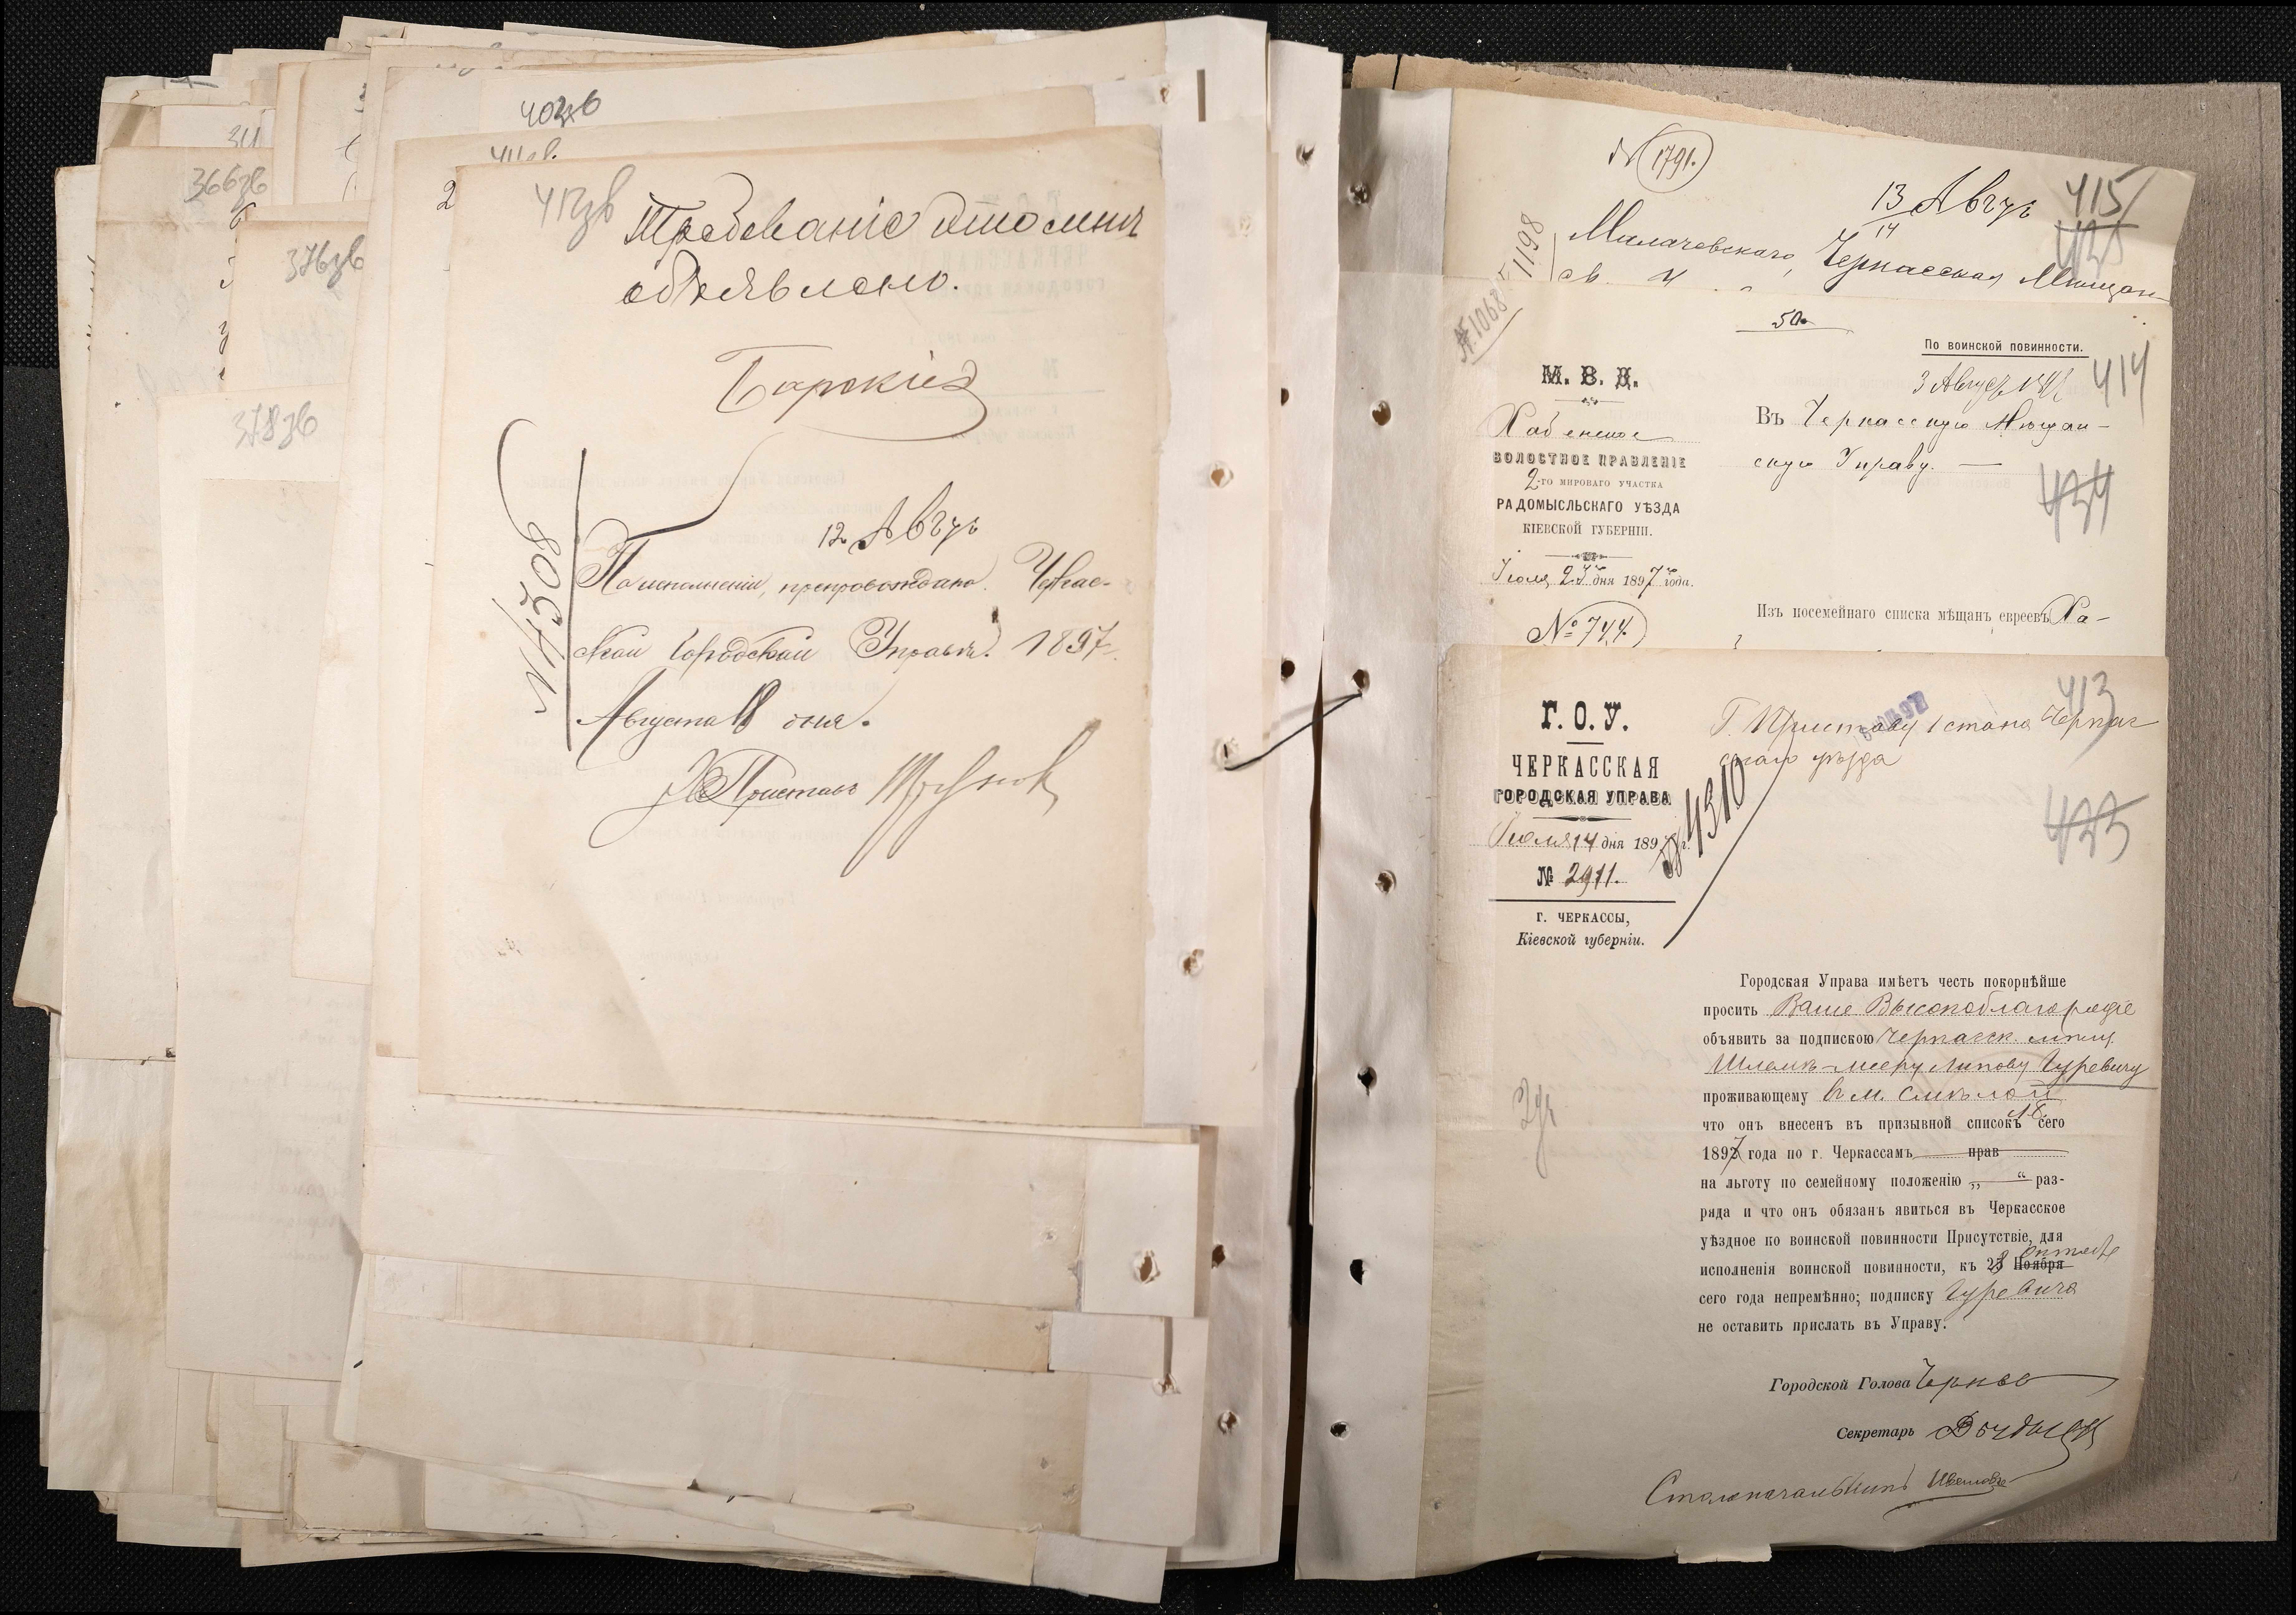 311
366зв
376зв
378зв
403зв
411зв.
2
412зв
Требованіе это мнѣ
объявлено.
Барскій
№ 4508
12 Авгус
По исполненіи, препровождаю Черкас-
ской Городской Управѣ. 1897 г.
Августа 8 дня.
Приставъ
№ 1791.
13 Авгус
14
415
425
1198
Черкасская Мѣщан-
№ 1068
50
По воинской повинности.
3 Августа 1897
414
М. В. Д.
Хабенское
ВОЛОСТНОЕ ПРАВЛЕНІЕ
2-го МИРОВАГО УЧАСТКА
РАДОМЫСЛЬСКАГО УѢЗДА
КІЕВСКОЙ ГУБЕРНІИ.
Въ Черкасскую Мѣщан-
скую Управу. —
424
Іюля 24 дня 1897 года.
№ 744.
Изъ посемейнаго списка мѣщанъ евреевъ Ха-
Г. О. У.
ЧЕРКАССКАЯ
ГОРОДСКАЯ УПРАВА
Іюля 14 дня 1897 г.
№ 2911.
г. ЧЕРКАССЫ,
Кіевской губерніи.
413
Г. Приставу 1 стана Черкас
скаго уѣзда
№ 4310
423
Городская Управа имѣетъ честь покорнѣйше
просить Ваше Высокоблагородіе
объявить за подпискою Черкасск. мѣщ.
Шлемѣ-Мееру Липову Гуревичу
проживающему въ м. Смѣлой
что онъ внесенъ въ призывной списокъ сего
1897 года по г. Черкассамъ прав
на льготу по семейному положенію „ “ раз-
ряда и что онъ обязанъ явиться въ Черкасское
уѣздное по воинской повинности Присутствіе, для
исполненія воинской повинности, къ 23 Ноября Октября
сего года непремѣнно; подписку Гуревича
не оставить прислать въ Управу.
Городской Голова
Секретарь
Столоначальникъ